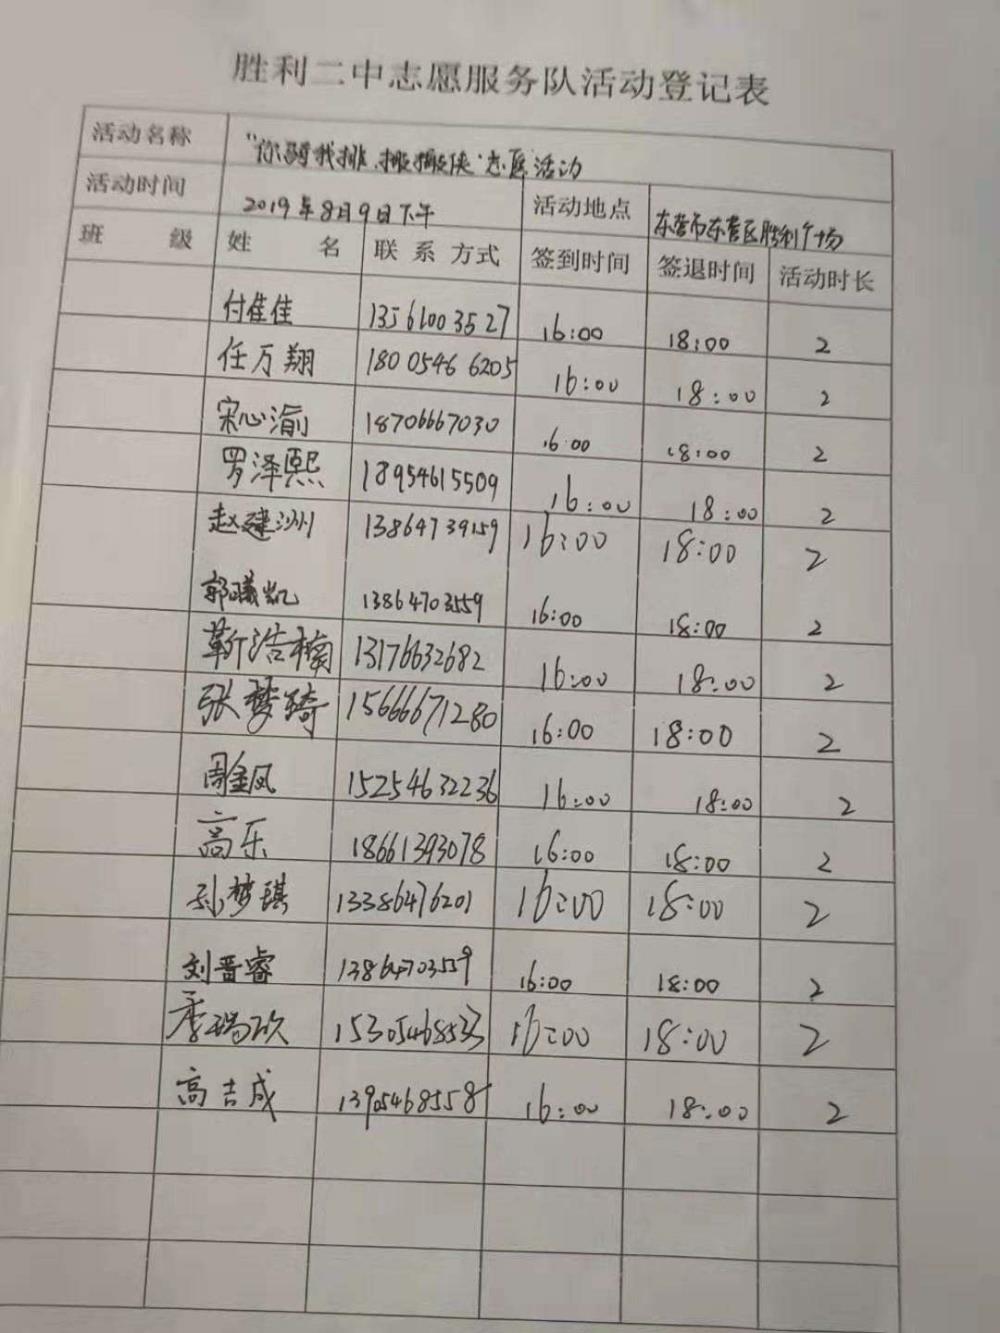 胜利二中志愿服务队活动登记表
活动名称 "你骑我排、搬搬侠"志愿活动
活动时间 2019年8月9日下午 活动地点 东营市东营区胜利广场
班 级 姓 名 联 系 方式 签到时间 签退时间 活动时长
付佳佳 13561003527 16:00 18:00 2
任万翔 18005466205 16:00 18:00 2
宋心渝 18706667030 16:00 18:00 2
罗泽熙 18954615509 16:00 18:00 2
赵建洲 13864739159 16:00 18:00 2
郭曦凯 13864703559 16:00 18:00 2
靳浩楠 13176632682 16:00 18:00 2
张梦琦 15666671280 16:00 18:00 2
周金凤 15254632236 16:00 18:00 2
高乐 18661393078 16:00 18:00 2
孙梦琪 13386476201 16:00 18:00 2
刘晋睿 13864703559 16:00 18:00 2
季瑞 15305468533 16:00 18:00 2
高吉成 13905468558 16:00 18:00 2